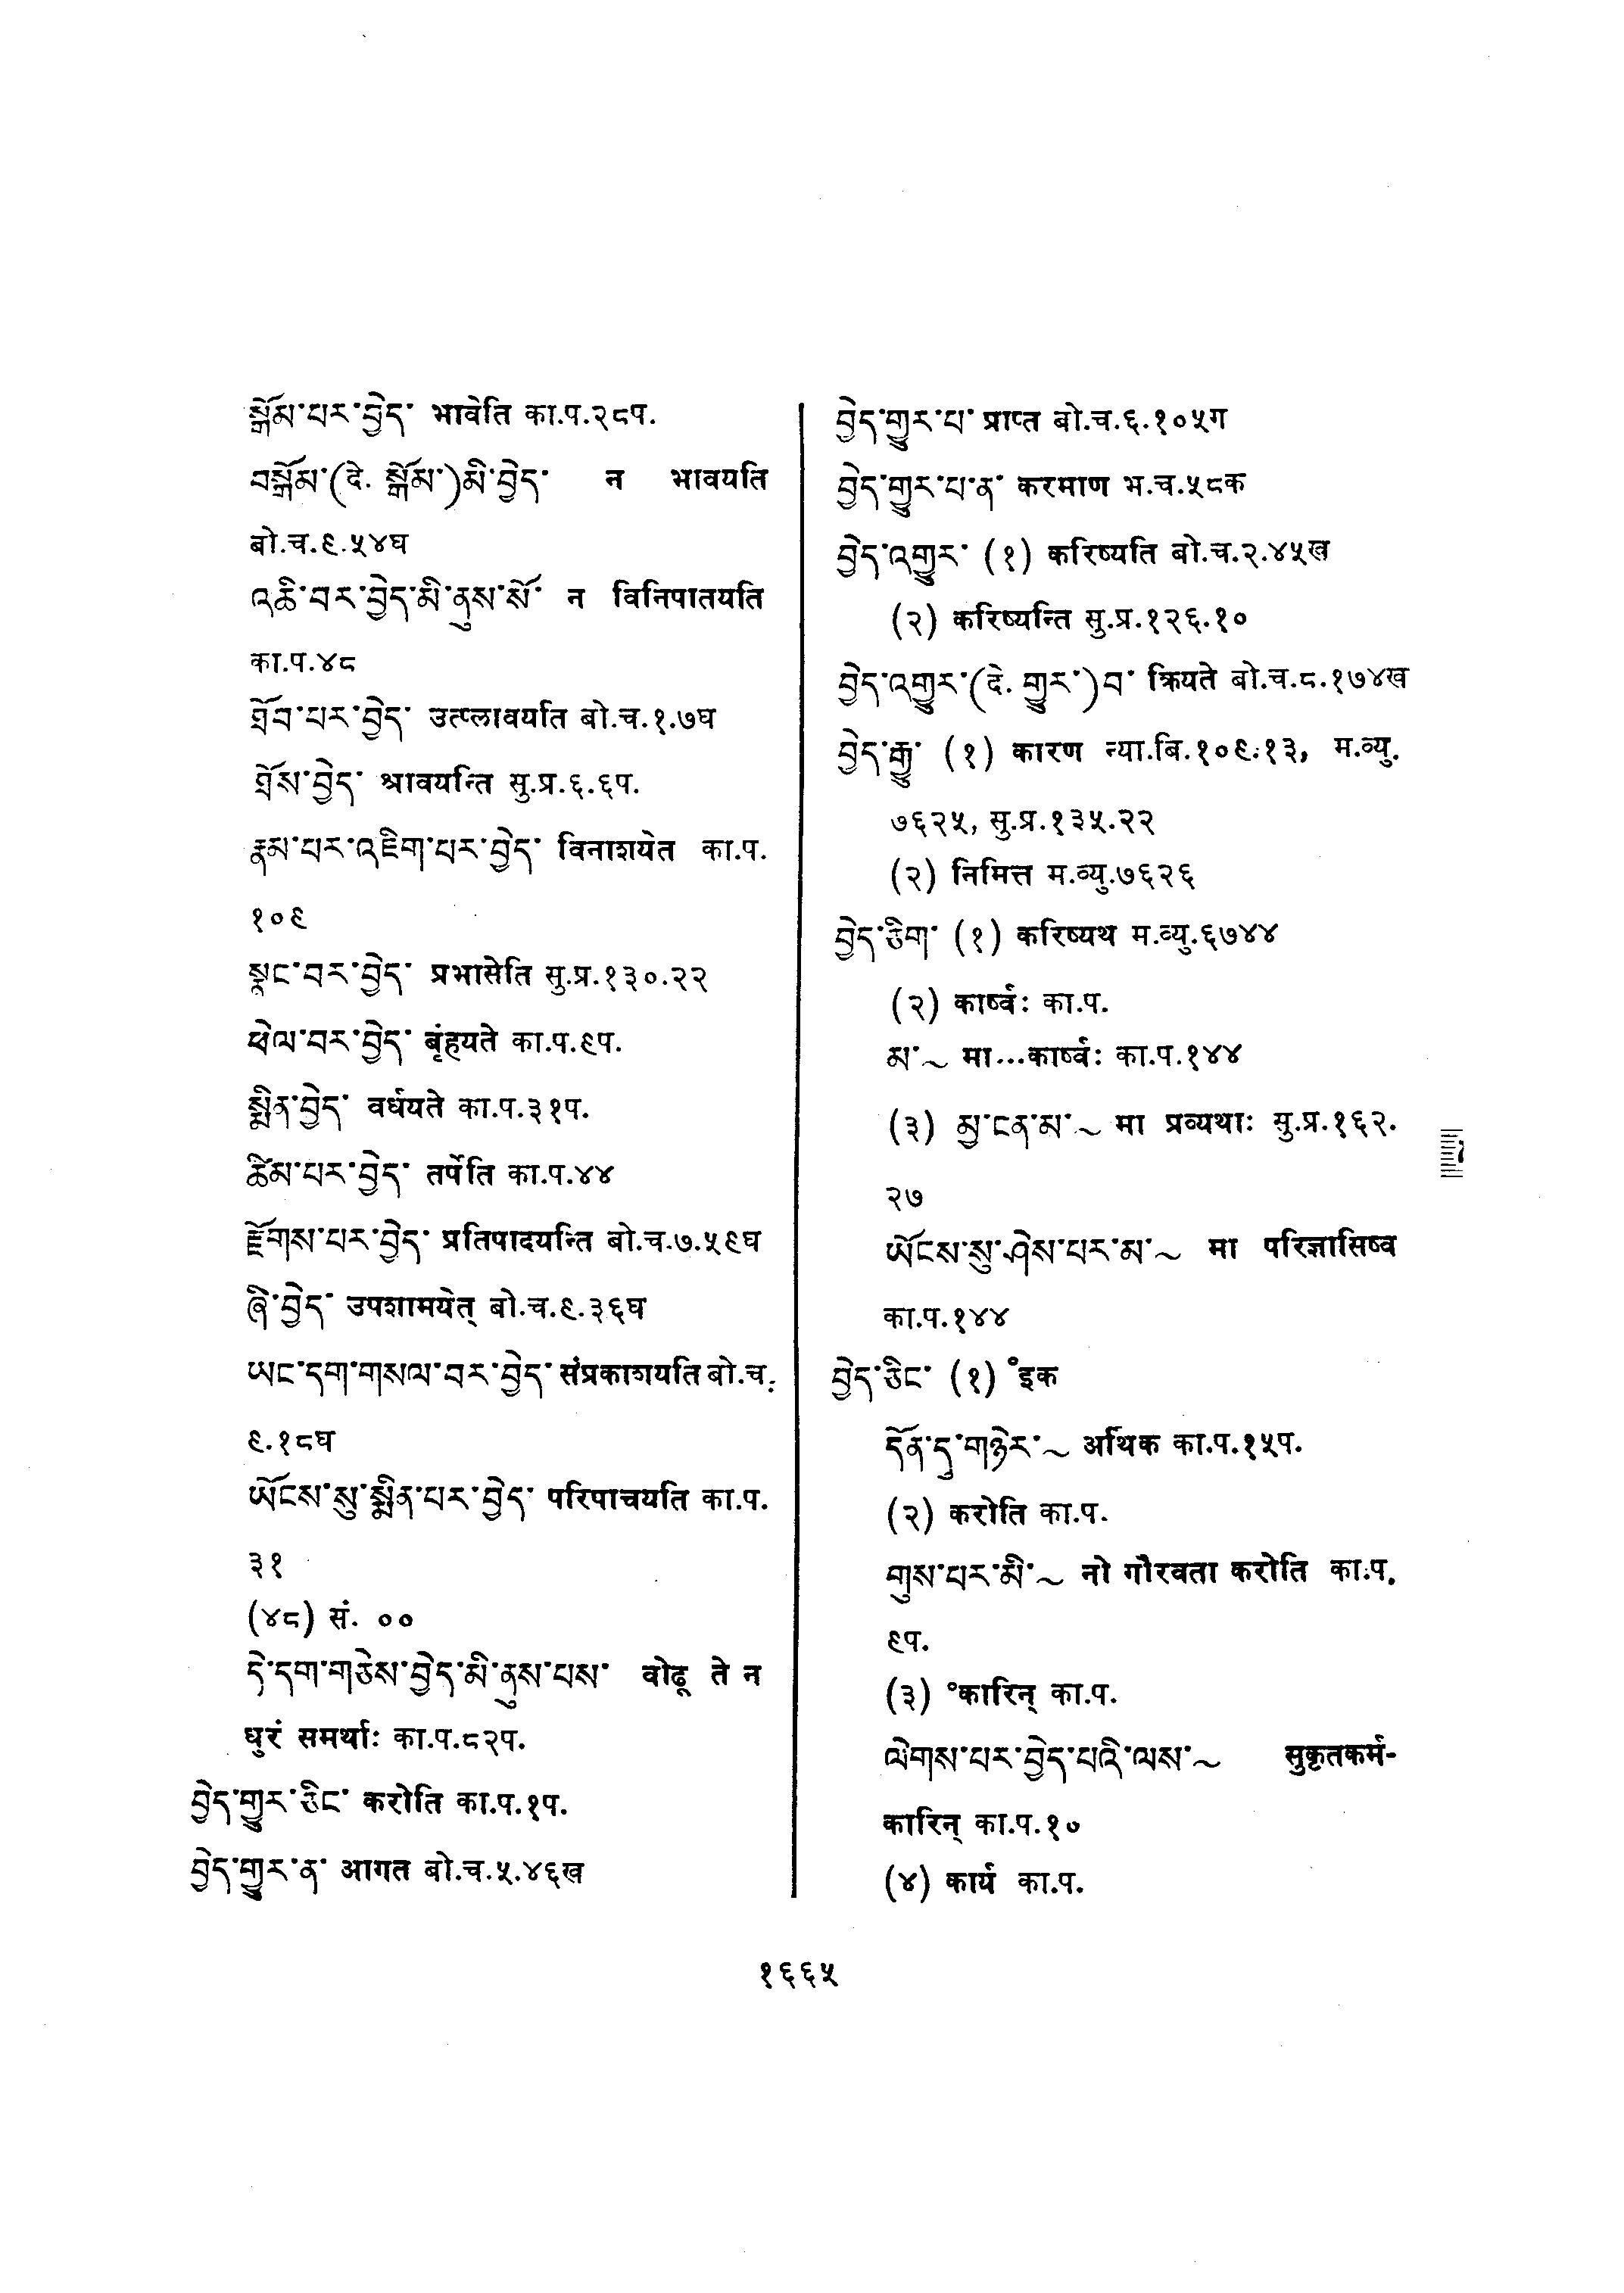 སྒོམ་པར་བྱེད་ भावेति का.प.२८प.
བསྒོམ་(दे. སྒོམ་)མི་བྱེད་ न भावयति
बो.च.९.५४घ
འཆི་བར་བྱེད་མི་ནུས་སོ་ न विनिपातयति
का.प.४८
ཐོབ་པར་བྱེད་ उत्प्लावयति बो.च.१.७घ
ཐོས་བྱེད་ श्रावयन्ति सु.प्र.६.६प.
རྣམ་པར་འཇིག་པར་བྱེད་ विनाशयेत का.प.
१०९
སྣང་བར་བྱེད་ प्रभासेति सु.प्र.१३०.२२
ཕེལ་བར་བྱེད་ बृंहयते का.प.९प.
སྨིན་བྱེད་ वर्धयते का.प.३१प.
ཚིམ་པར་བྱེད་ तर्पेति का.प.४४
རྫོགས་པར་བྱེད་ प्रतिपादयन्ति बो.च.७.५९घ
ཞི་བྱེད་ उपशामयेत् बो.च.९.३६घ
ཡང་དག་གསལ་བར་བྱེད་ संप्रकाशयति बो.च.
९.१८घ
ཡོངས་སུ་སྨིན་པར་བྱེད་ परिपाचयति का.प.
३१
(४८) सं. ००
དེ་དག་གཅེས་བྱེད་མི་ནུས་པས་ वोढू ते न
धुरं समर्थाः का.प.८२प.
བྱེད་གྱུར་ཅིང་ करोति का.प.१प.
བྱེད་གྱུར་ན་ आगत बो.च.५.४६ख
བྱེད་གྱུར་པ་ प्राप्त बो.च.६.१०५ग
བྱེད་གྱུར་པ་ན་ करमाण भ.च.५८क
བྱེད་འགྱུར་ (१) करिष्यति बो.च.२.४५ख
(२) करिष्यन्ति सु.प्र.१२६.१०
བྱེད་འགྱུར་(दे. གྱུར་)བ་ क्रियते बो.च.८.१७४ख
བྱེད་རྒྱུ་ (१) कारण न्या.बि.१०९.१३, म.व्यु.
७६२५, सु.प्र.१३५.२२
(२) निमित्त म.व्यु.७६२६
བྱེད་ཅིག་ (१) करिष्यथ म.व्यु.६७४४
(२) कार्ष्वः का.प.
མ་~ मा...कार्ष्वः का.प.१४४
(३) མྱ་ངན་མ་~ मा प्रव्यथाः सु.प्र.१६२.
२७
ཡོངས་སུ་ཤེས་པར་མ་~ मा परिज्ञासिष्व
का.प.१४४
བྱེད་ཅིང་ (१) °इक
དོན་དུ་གཉེར་~ अर्थिक का.प.१५प.
(२) करोति का.प.
གུས་པར་མི་~ नो गौरवता करोति का.प.
९प.
(३) °कारिन् का.प.
ལེགས་པར་བྱེད་པའི་ལས་~ सुकृतकर्म-
कारिन् का.प.१०
(४) कार्य का.प.
१६६५